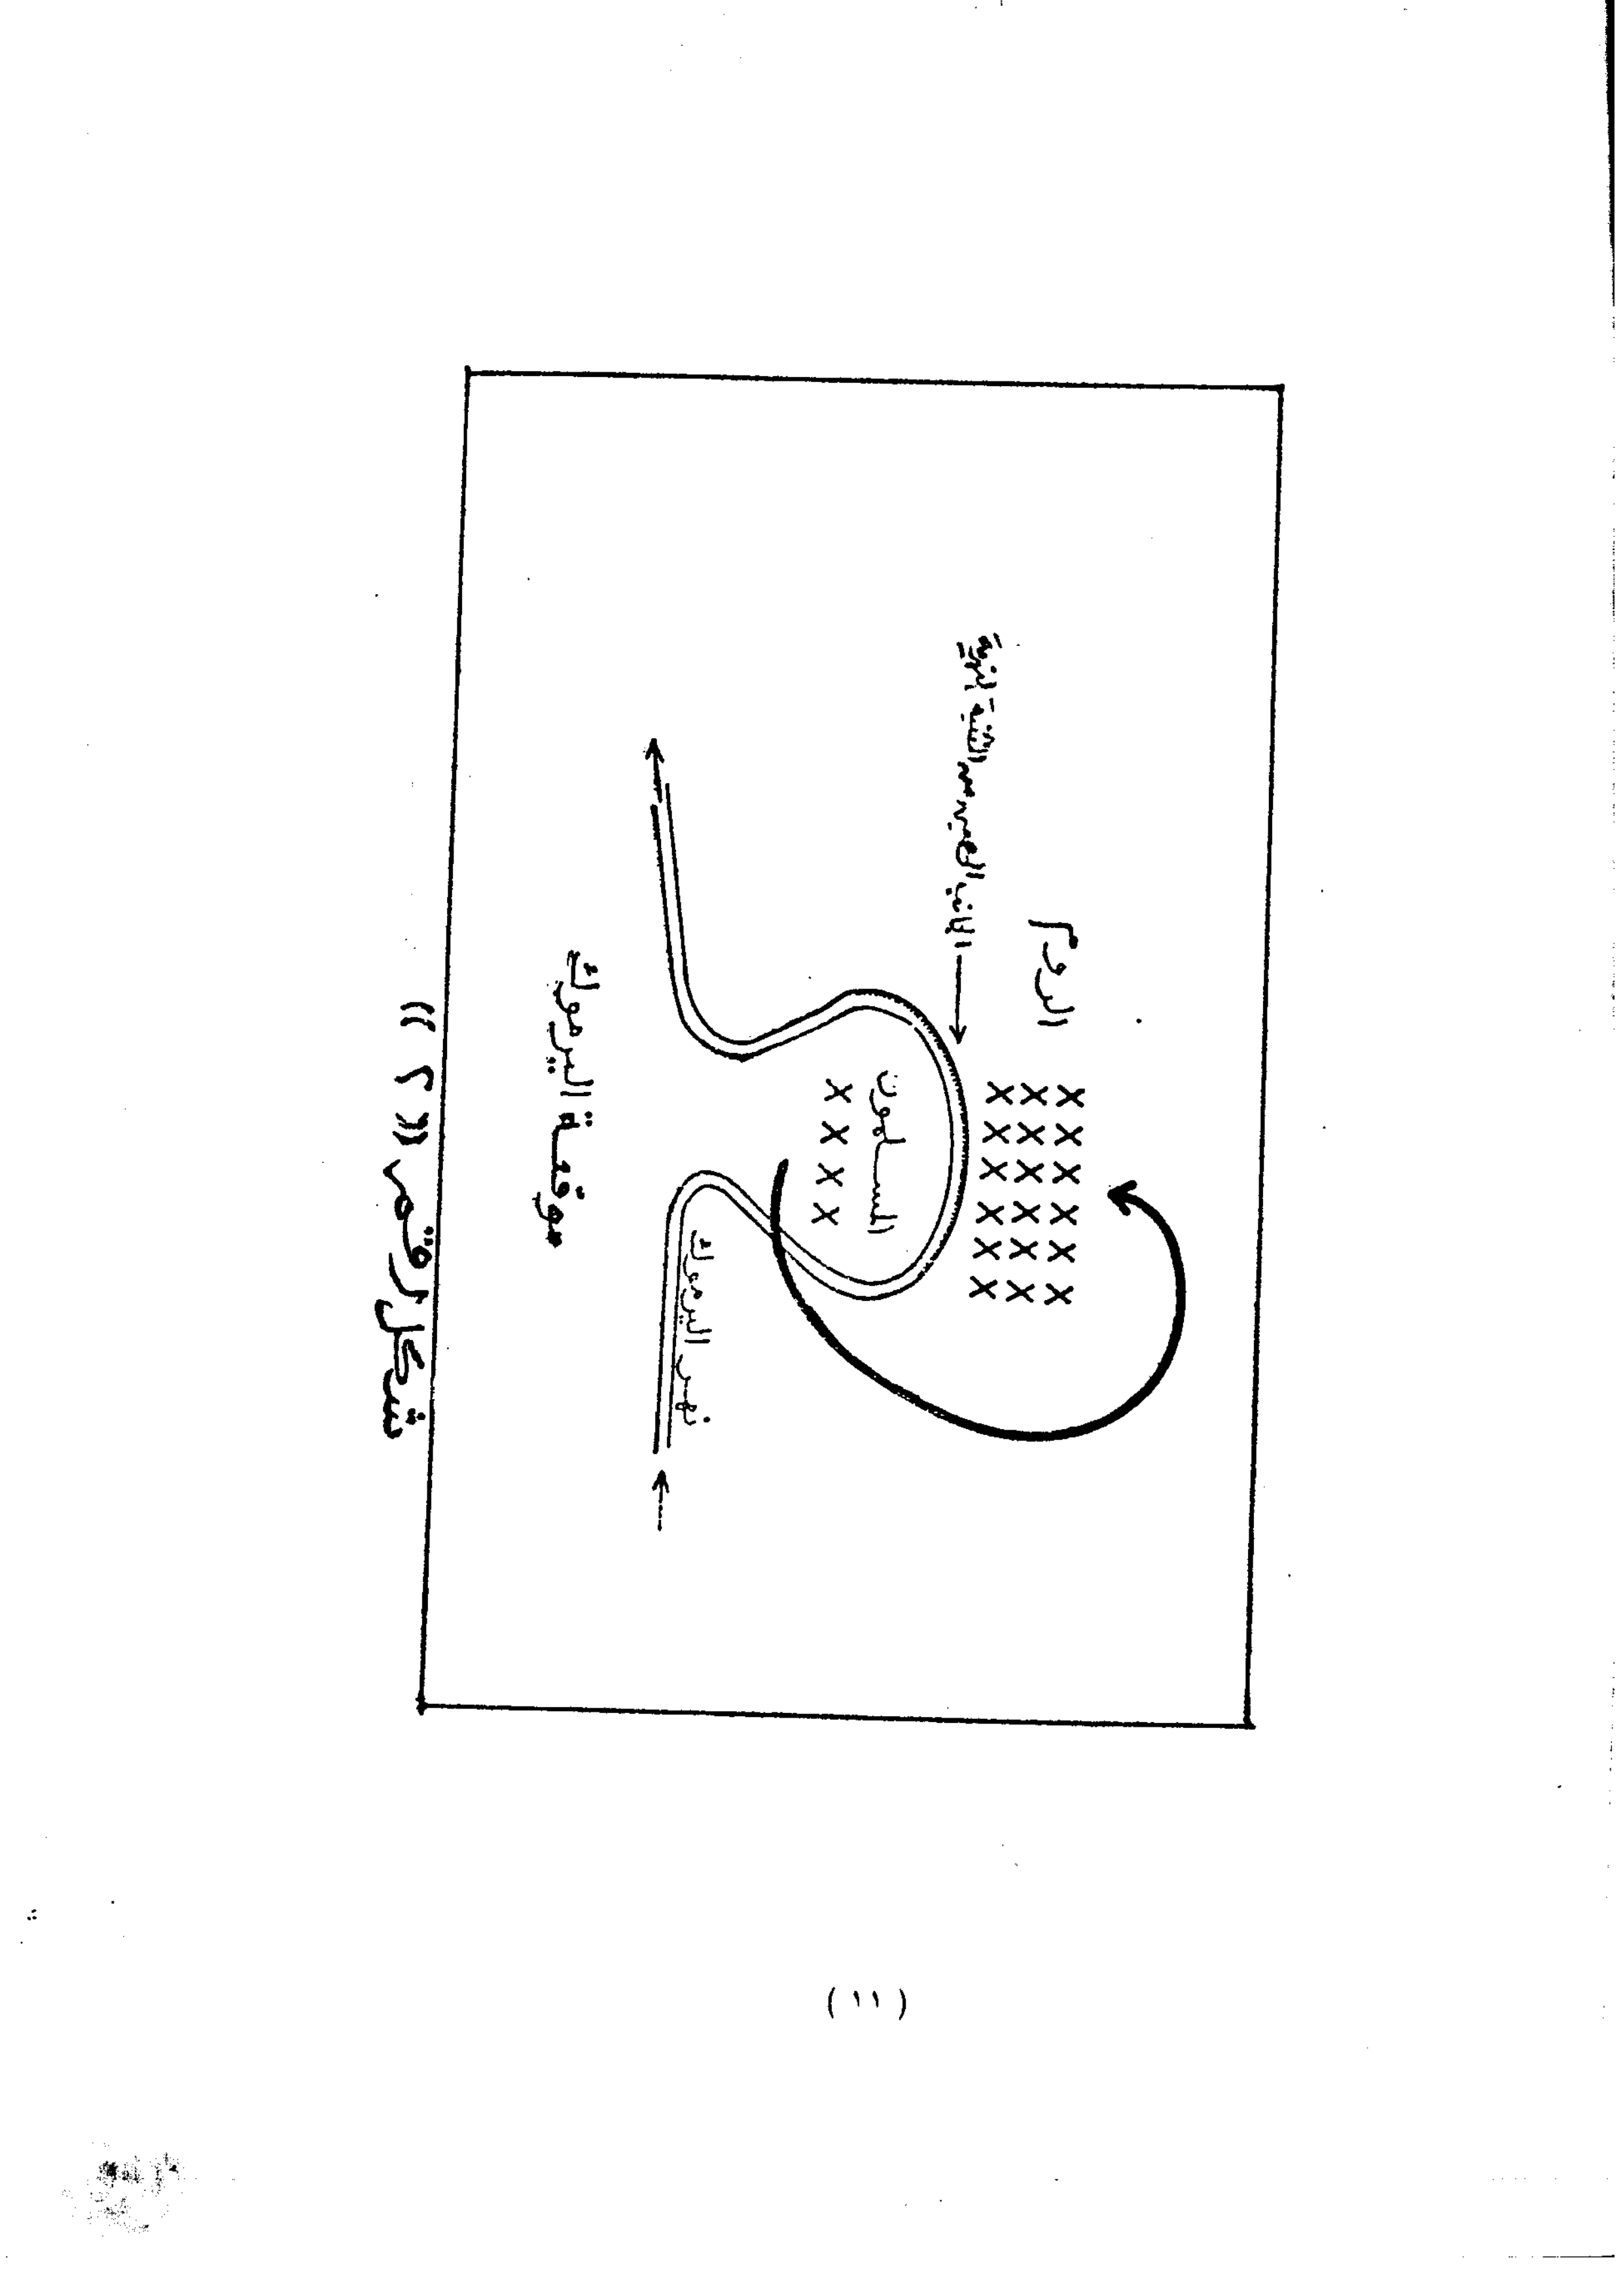 الروم
الانف العميد من الثنية الغربية
المسلمون
نهر اليرموك
موقعة اليرموك
شكل رقم (( ٢ ))
( ١١ )